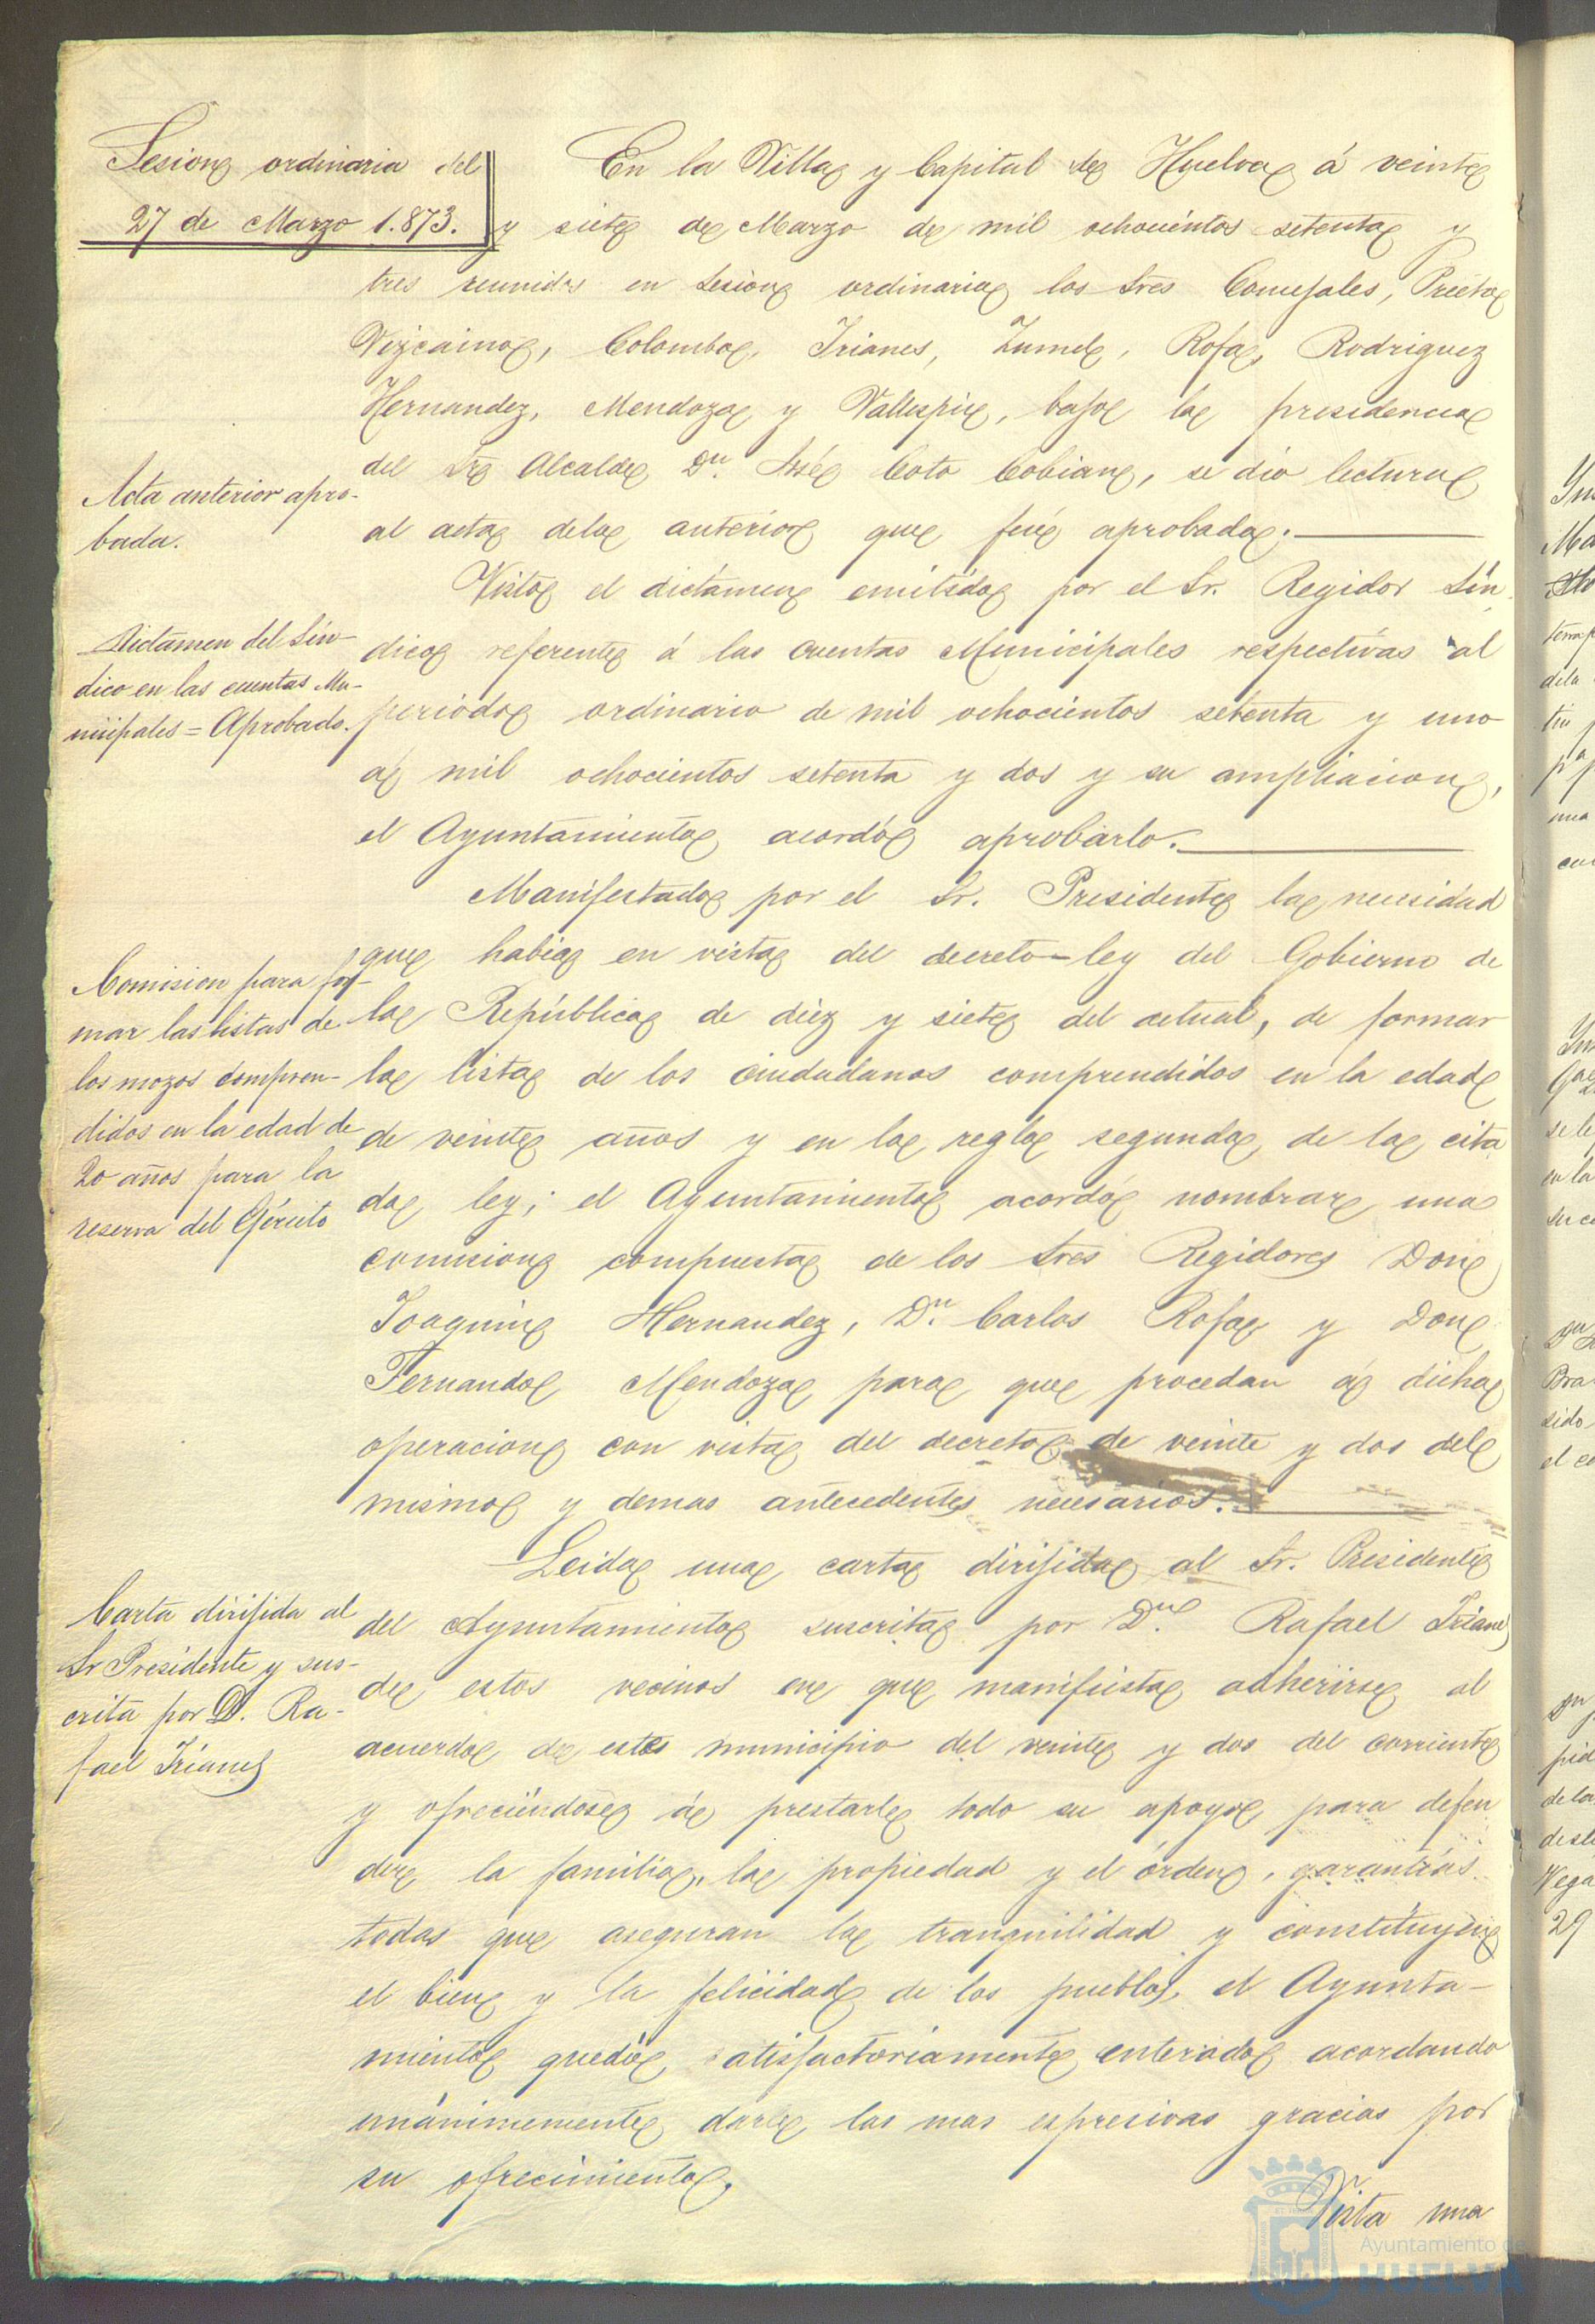 Sesion ordinaria del
27 de Marzo 1.873.
En la Villa y Capital de Huelva á veinte
y siete de Marzo de mil ochocientos setenta y
tres reunidos en sesion ordinaria los Sres Concejales, Prieto
Vizcaino, Colombo, Trianes, Zumel, Rofa, Rodriguez
Hernandez, Mendoza y Vallespin, bajo la presidencia
del Sr Alcalde Dn. José Coto Cobian, se dió lectura
al acta dela anterior que fué aprobada.
Acta anterior apro-
bada.
Visto el dictámen emitido por el Sr. Regidor Sín
dico referente á las cuentas Municipales respectivas al
periodo ordinario de mil ochocientos setenta y uno
á mil ochocientos setenta y dos y su ampliacion,
el Ayuntamiento acordó aprobarlo.
Dictamen del Sín-
dico en las cuentas Mu-
nicipales = Aprobado.
Manifestado por el Sr. Presidente la necesidad
que habia en vista del decreto-ley del Gobierno de
la República de diez y siete del actual, de formar
la lista de los ciudadanos comprendidos en la edad
de veinte años y en la regla segunda de la cita
da ley; el Ayuntamiento acordó nombrar una
comision compuesta de los Sres Regidores Don
Joaquin Hernandez, Dn. Carlos Rofa y Don
Fernando Mendoza para que procedan á dicha
operacion con vista del decreto de veinte y dos del
mismo y demas antecedentes necesarios.
Comision para for-
mar las listas de
los mozos compren-
didos en la edad de
20 años para la
reserva del Ejército
Leida una carta dirijida al Sr. Presidente
del Ayuntamiento suscrita por Dn. Rafael Trianes
de estos vecinos en que manifiesta adherirse al
acuerdo de este municipio del veinte y dos del corriente
y ofreciéndose á prestarle todo su apoyo para defen
der la familia, la propiedad y el órden, garantías
todas que aseguran la tranquilidad y constituyen
el bien y la felicidad de los pueblos, el Ayunta-
miento quedó satisfactoriamente enterado acordando
unánimemente darle las mas espresivas gracias por
su ofrecimiento.
Carta dirijida al
Sr Presidente y sus-
crita por D. Ra-
fael Trianes
Vista una
Ayuntamiento de
HUELVA